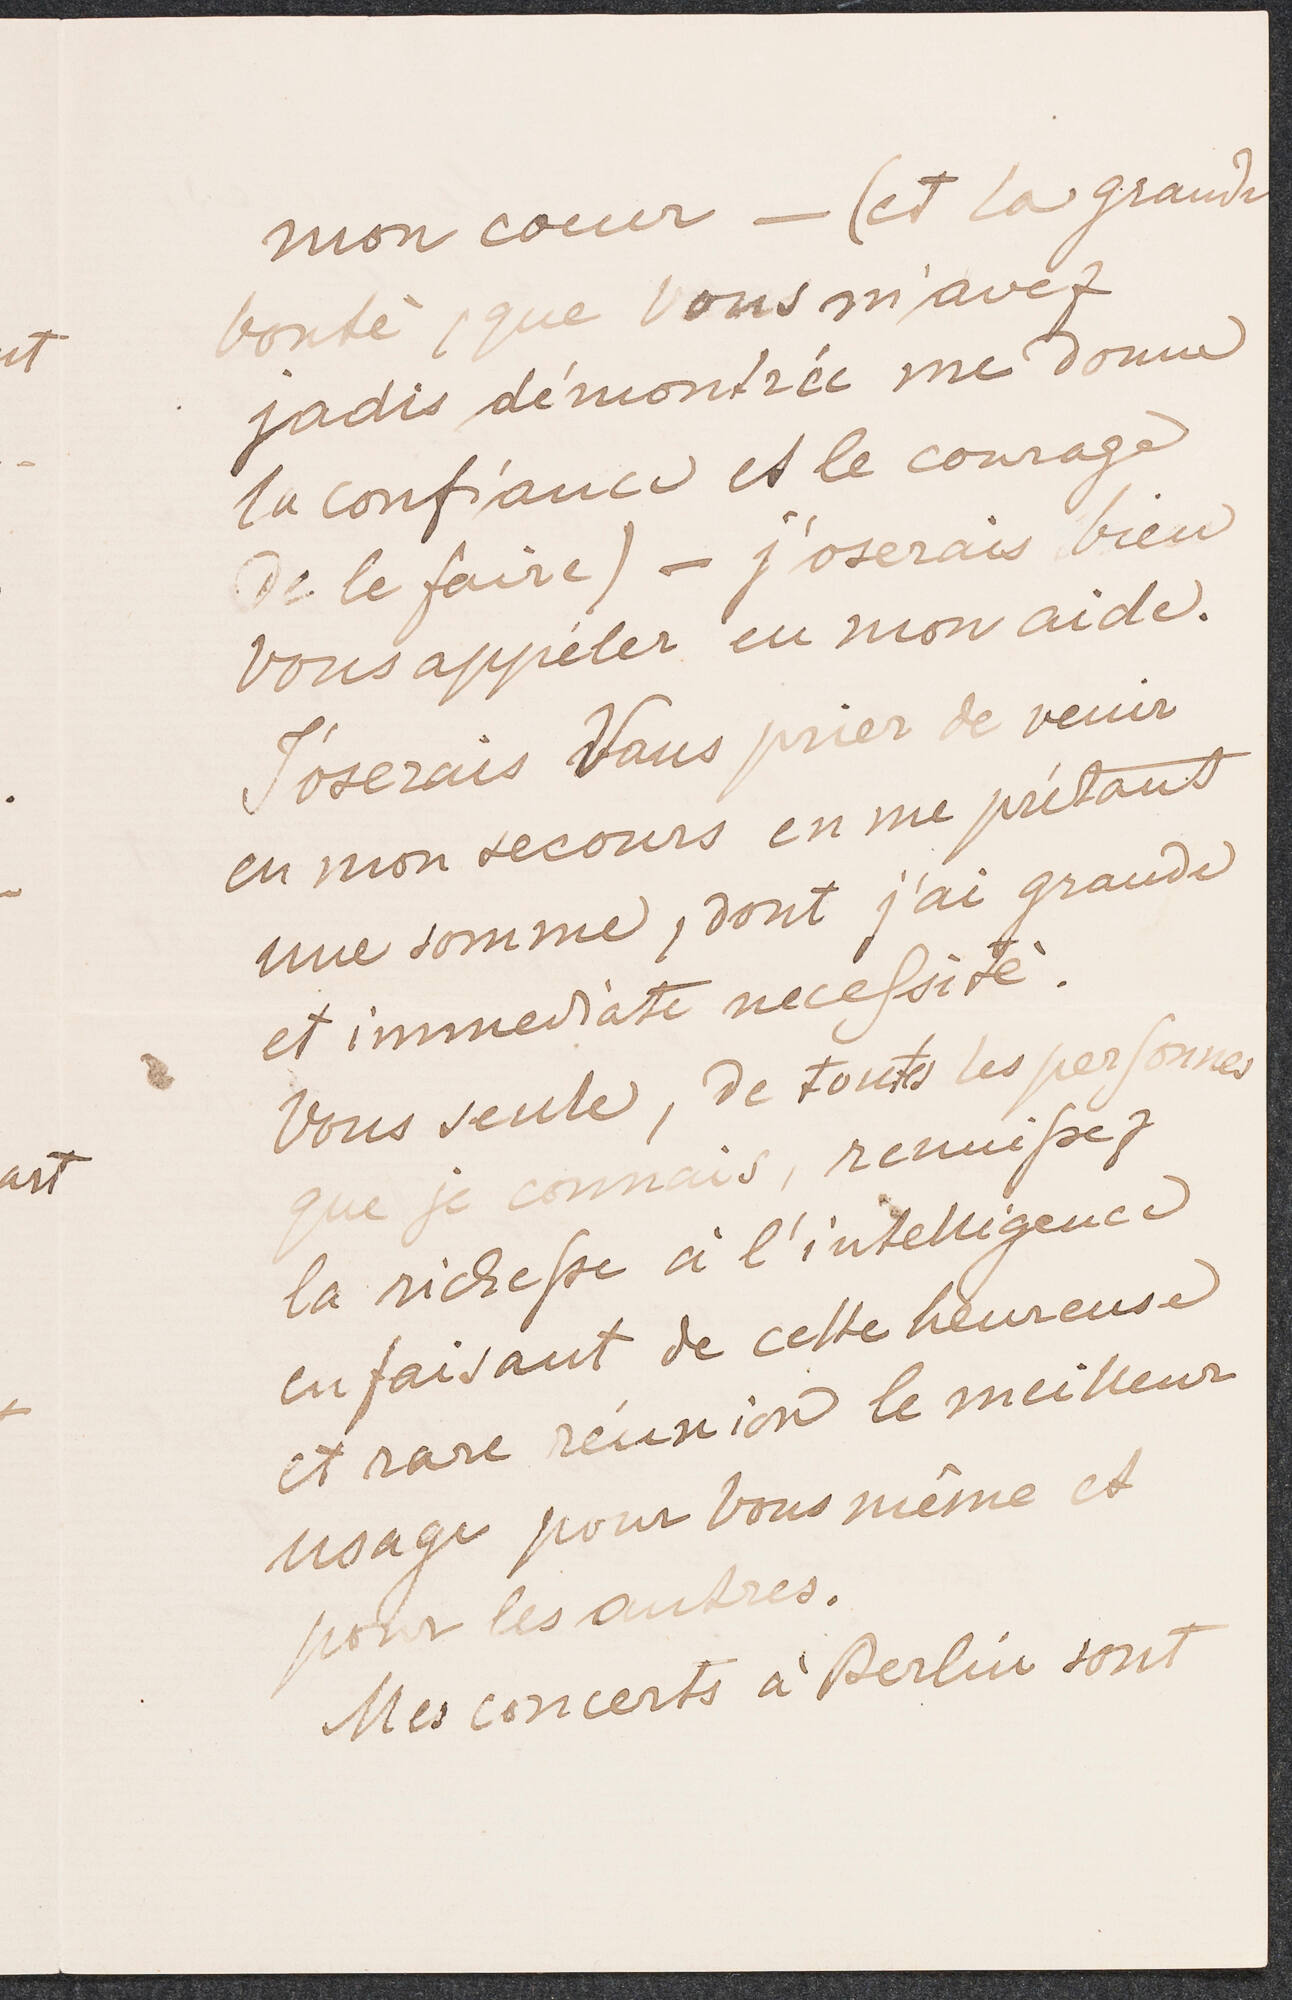 mon coeur — (et la grande
bontè, que Vous m'avez
jadis démontrée me donne
la confiance et le courage
de le faire) — j'oserais bien
Vous appéler en mon aide.
J'oserais Vous prier de venir
en mon secours en me prétant
une somme, dont j'ai grande
et immediate necessitè.
Vous seule, de toutes les personnes
que je connais, reunissez
la richesse à l'intelligence
en faisant de cette heureuse
et rare réunion le meilleur
usage pour Vous même et
pour les autres.
Mes concerts à Berlin sont